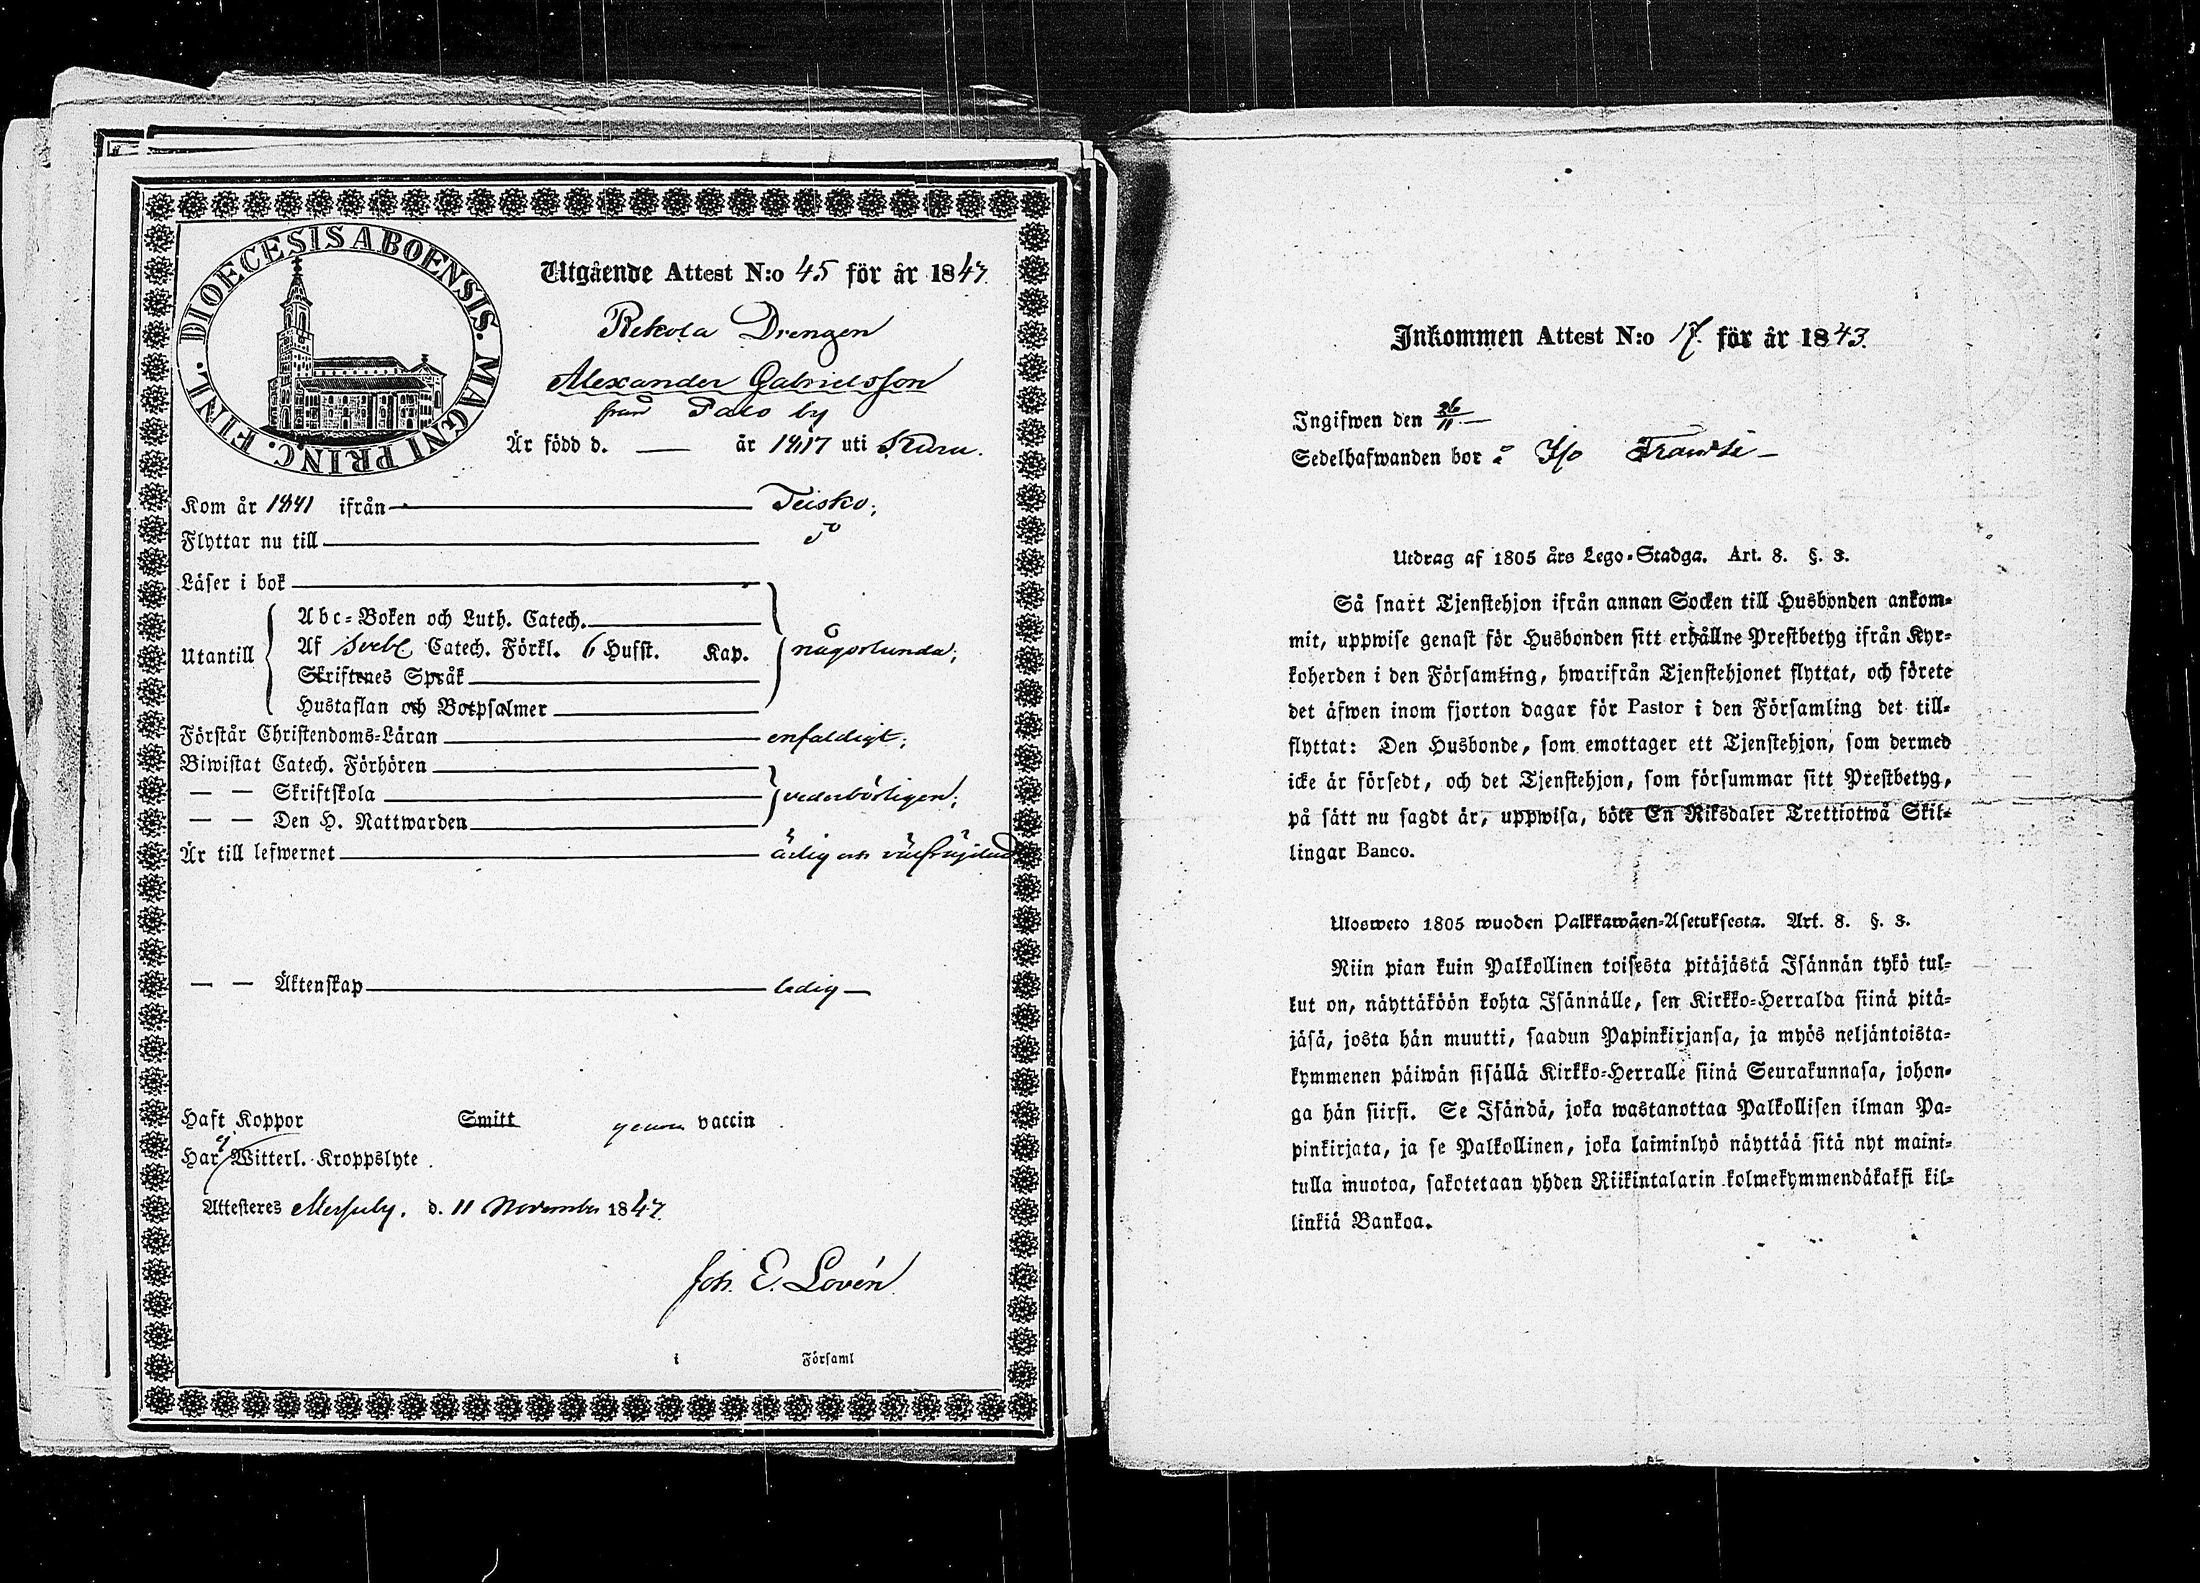 DIOECESIS ABOENSIS. MAGNI PRINC. FINL.
Utgående Attest N:o 45 för år 1843.
Rekola Drengen
Alexander Gabrielsson
från Palo by
Är född d. — år 1817 uti Kuru.
Kom år 1841 ifrån Teisko;
Flyttar nu till do
Läser i bok
Utantill
Abc-Boken och Luth. Catech.
Af Svebl Catech. Förkl. 6 Hufst. Kap. någorlunda;
Skriftenes Språk
Hustaflan och Botpsalmer
Förstår Christendoms-Läran enfaldigt;
Biwistat Catech. Förhören
— — Skriftskola vederbörligen;
— — Den H. Nattwarden
Är till lefwernet ärlig och välfrejdad
— — Äktenskap ledig —
Haft Koppor Smitt genom vaccin
Har ej Witterl. Kroppslyte.
Attesteres Messuby. d. 11 November 1843.
Joh. E. Lovén
i Församl
Inkommen Attest N:o 17. för år 1843.
Ingifwen den 26/11 —
Sedelhafwanden bor å Iso Frantti —
Utdrag af 1805 års Lego-Stadga. Art. 8. §. 3.
Så snart Tjenstehjon ifrån annan Socken till Husbonden ankom-
mit, uppwise genast för Husbonden sitt erhållne Prestbetyg ifrån Kyr-
koherden i den Församling, hwarifrån Tjenstehjonet flyttat, och förete
det äfwen inom fjorton dagar för Pastor i den Församling det till-
flyttat: Den Husbonde, som emottager ett Tjenstehjon, som dermed
icke är försedt, och det Tjenstehjon, som försummar sitt Prestbetyg,
på sätt nu sagdt är, uppwisa, böte En Riksdaler Trettiotwå Skil-
lingar Banco.
Ulosweto 1805 wuoden Palkkawäen-Asetuksesta. Art. 8. §. 3.
Niin pian kuin Palkollinen toisesta pitäjästä Isännän tykö tul-
lut on, näyttäköön kohta Isännälle, sen Kirkko-Herralda siinä pitä-
jäsä, josta hän muutti, saadun Papinkirjansa, ja myös neljäntoista-
kymmenen päiwän sisällä Kirkko-Herralle siinä Seurakunnasa, johon-
ga hän siirsi. Se Isändä, joka wastanottaa Palkollisen ilman Pa-
pinkirjata, ja se Palkollinen, joka laiminlyö näyttää sitä nyt maini-
tulla muotoa, sakotetaan yhden Riikintalarin kolmekymmendäkaksi kil-
linkiä Bankoa.